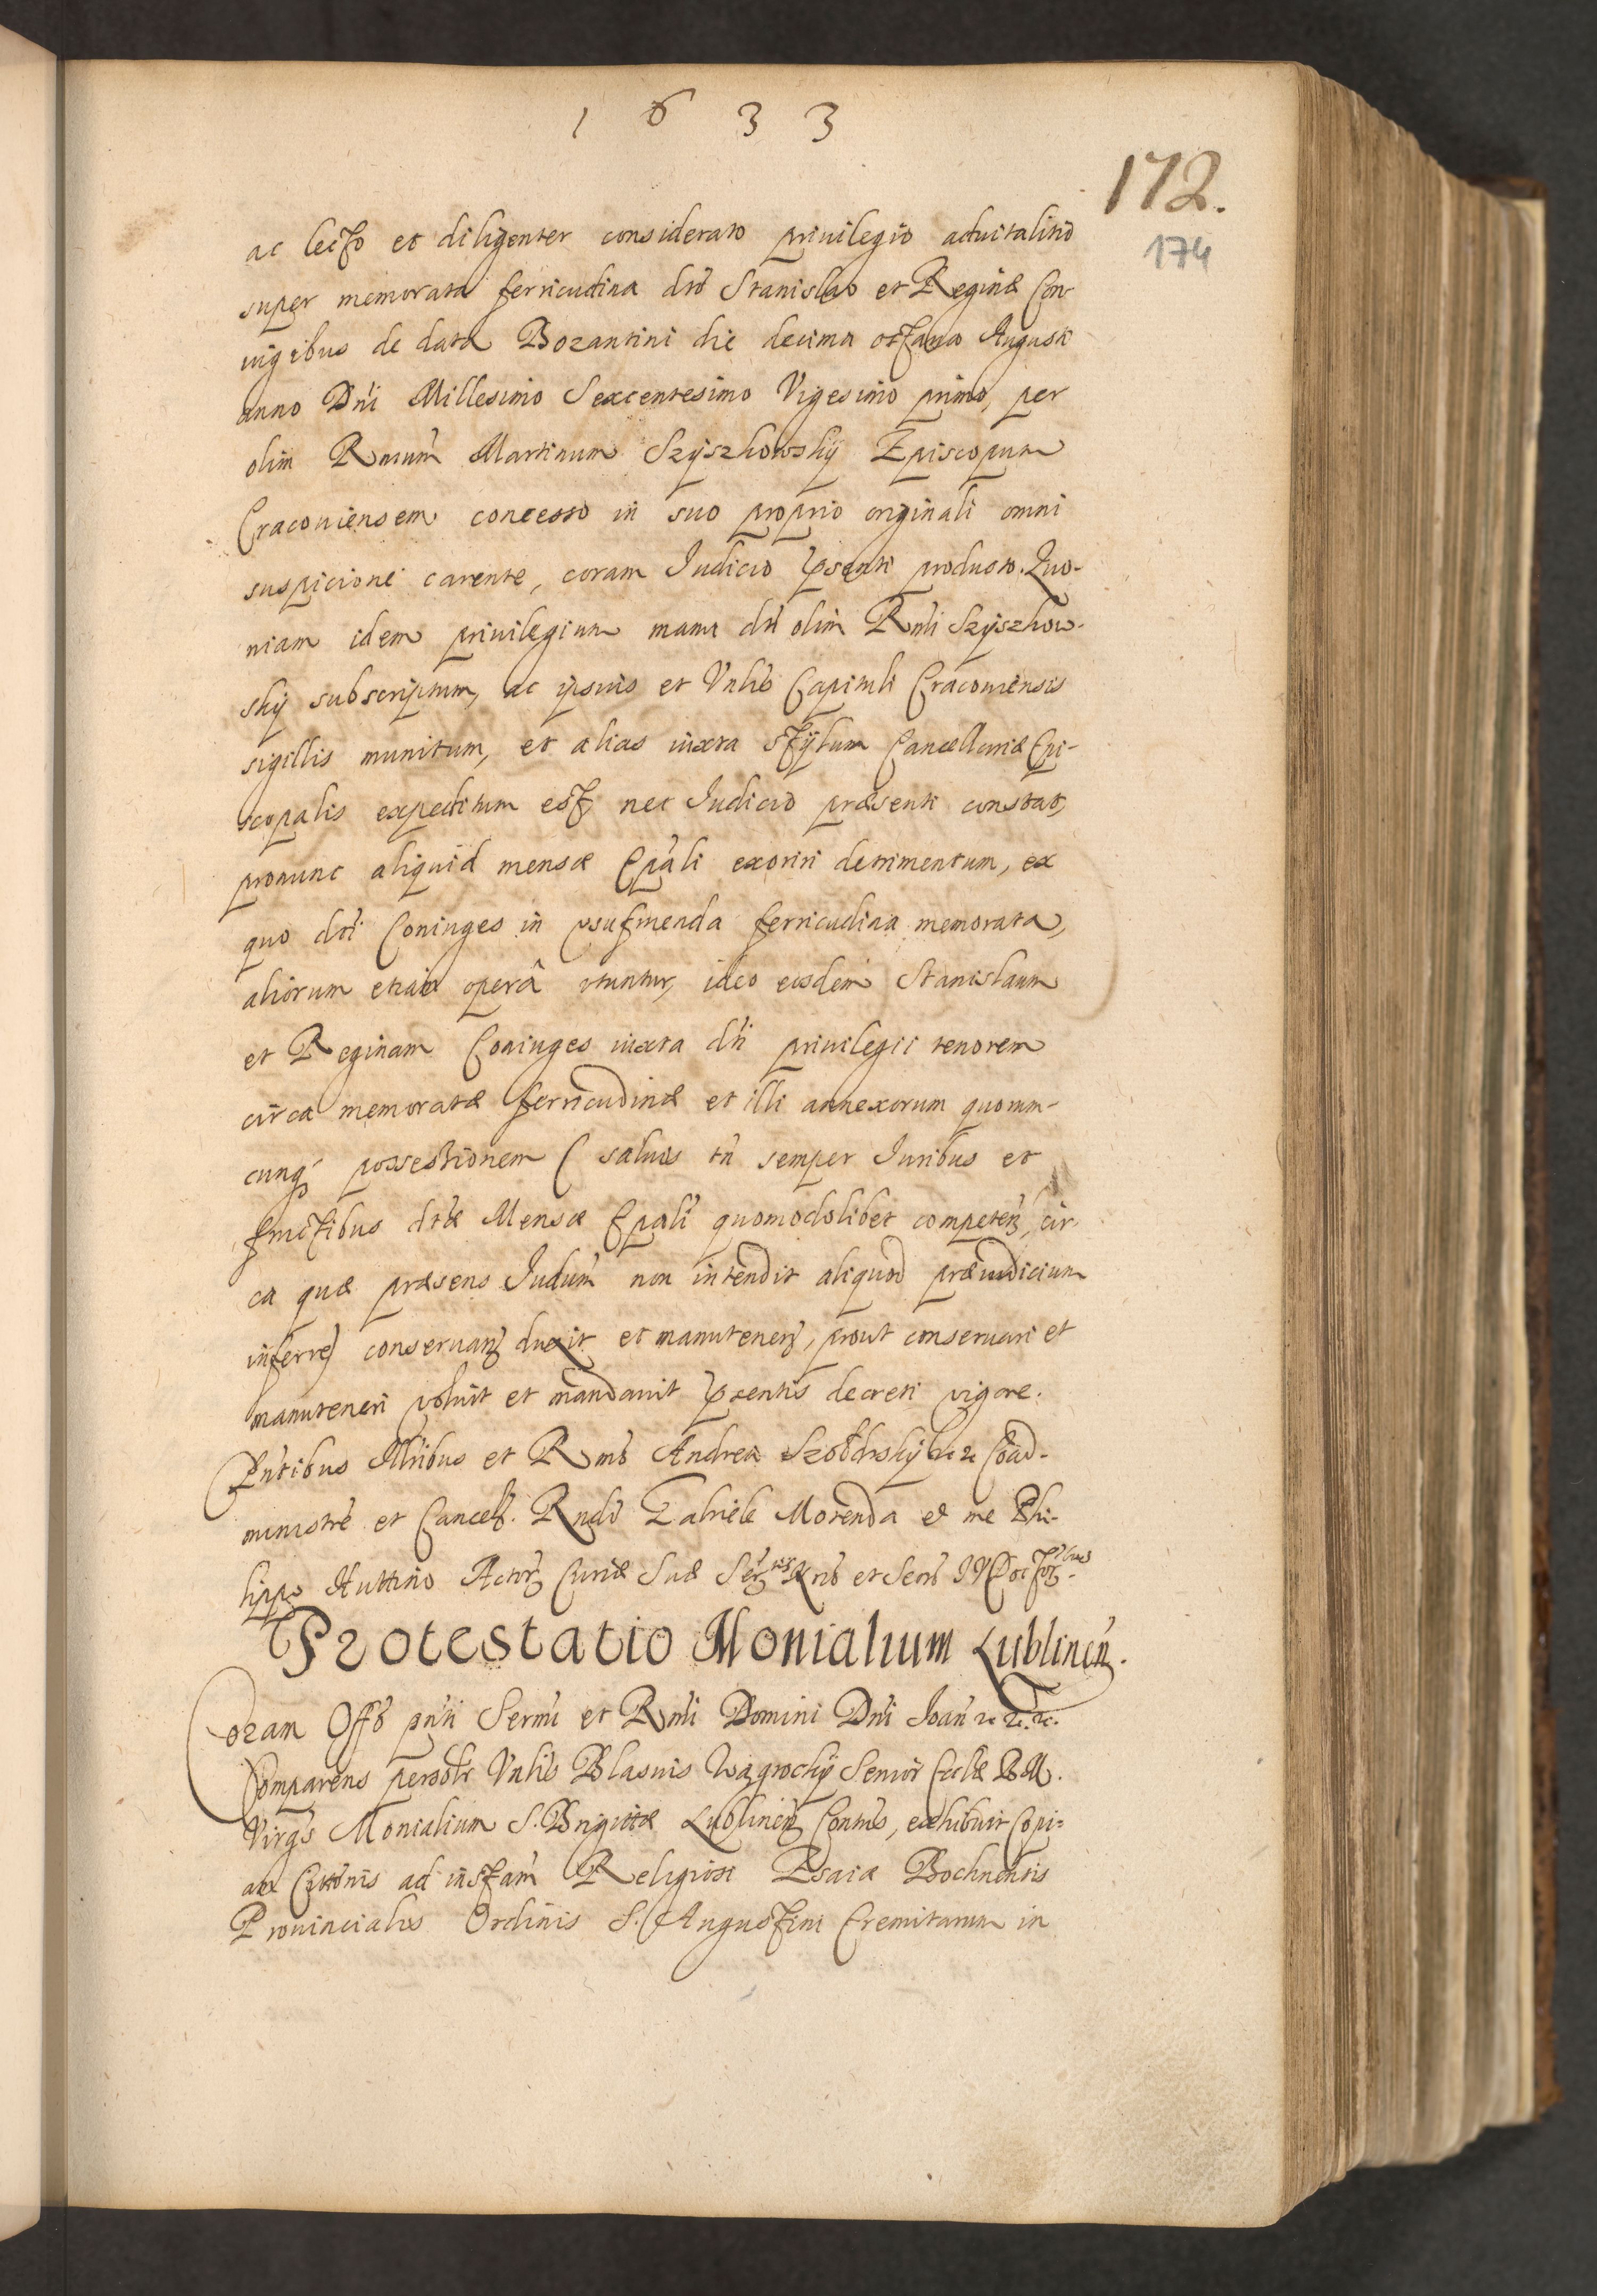 1633
172.
174
ac lecto et diligenter considerato priuilegio aduitalitio
super memorata ferricudina dto Stanislao et Reginæ Con-
iugibus de data Bozantini die decima octaua Augusti
anno Dni Millesimo Sexcentesimo Vigesimo primo, per
olim Rmum Martinum Szyszkowsky Episcopum
Cracouiensem concesso in suo proprio originali omni
suspicione carente, coram Iudicio psenti producto. Quo-
niam idem priuilegium manu dti olim Rmi Szyszkow-
sky subscriptum, ac ipsius et Vnlis Capituli Cracouiensis
sigillis munitum, et alias iuxta stylum Cancellariæ Epi-
scopalis expeditum est, nec Iudicio præsenti constat,
pronunc aliquid mensæ Epali exoriri detrimentum, ex
quo dti Coniuges in vsufruenda ferricudina memorata,
aliorum etiam operâ vtuntur, ideo eosdem Stanislaum
et Reginam Coniuges iuxta dti priuilegii tenorem
circa memoratæ ferricudinæ et illi annexorum quorum-
cunq possessionem ( saluis tn semper Iuribus et
fructibus dtæ Mensæ Epali quomodolibet competen, cir-
ca quæ præsens Iudium non intendit aliquod præiudicium
inferre) conseruan duxit et manutenen, prout conseruari et
manuteneri voluit et mandauit psentis decreti vigore.
Pntibus Illribus et Rmis Andrea Szołdrsky &c Coad-
ministre et Cancel. Rndo Gabriele Morenda et me Phi-
lippo Huttino Actor Curiæ Suæ et
Protestatio Monialium Lublinen.
Coram Offo pnti Sermi et Rmi Domini Dni Ioan &c &c. &c.
Comparens personlr Vnlis Blasius Wągrocky Senior Eccliæ B. M.
Virgs Monialium S. Brigittæ Lublinen Contus, exhibuit Copi-
am Citonis ad instam Religiosi Esaiæ Bochnensis
Prouincialis Ordinis S. Augustini Eremitarum in